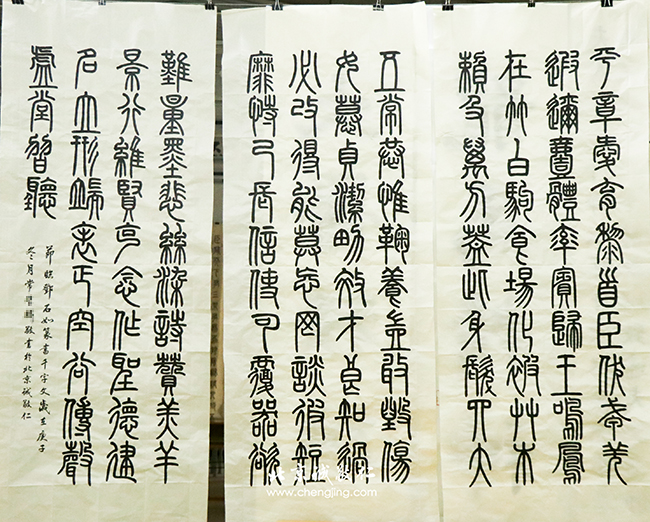 平章愛育黎首臣伏戎羌
遐邇壹體率賓歸王鳴鳳
在竹白駒食場化被草木
賴及萬方蓋此身髮四大
五常恭惟鞠養豈敢毀傷
女慕貞潔男效才良知過
必改得能莫忘罔談彼短
靡恃己長信使可覆器欲
難量墨悲絲染詩讚羔羊
景行維賢克念作聖德建
名立形端表正空谷傳聲
虛堂習聽
節臨鄧石如篆書千字文歲在庚子
冬月常麟敬書於北京誠敬仁
北京誠敬仁
www.chengjing.com